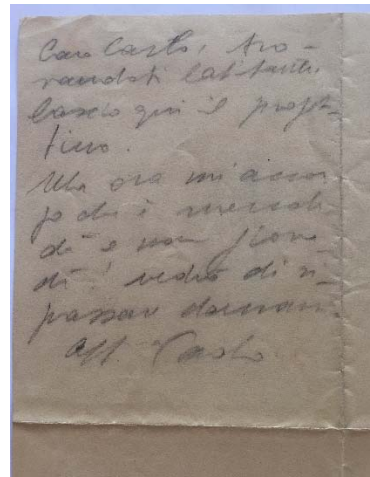 Caro Carlo, tro-
vandoti latitante
lascio qui il proget-
tino.
Ma ora mi accor
go che è mercole
dì e non giove
dì! vedrò di ri
passare domani.
aff. Carlo